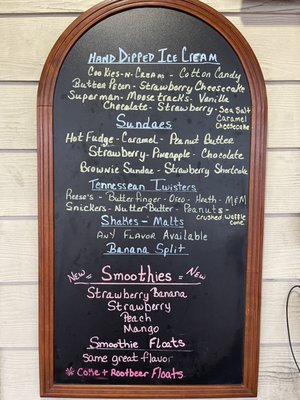 Hand Dipped Ice Cream
Cookies-n-Cream - Cotton Candy
Butter Pecan - Strawberry Cheesecake
Superman - Moosetracks - Vanilla
Chocolate - Strawberry - Sea Salt
Caramel
Cheesecake
Sundaes
Hot Fudge - Caramel - Peanut Butter
Strawberry - Pineapple - Chocolate
Brownie Sundae - Strawberry Shortcake
Tennessean Twisters
Reese's - Butterfinger - Oreo - Heath - M&M
Snickers - Nutter Butter - Peanuts -
crushed Waffle
cone
Shakes - Malts
Any Flavor Available
Banana Split
New = Smoothies = New
Strawberry Banana
Strawberry
Peach
Mango
Smoothie Floats
same great flavor
* Coke + Rootbeer Floats